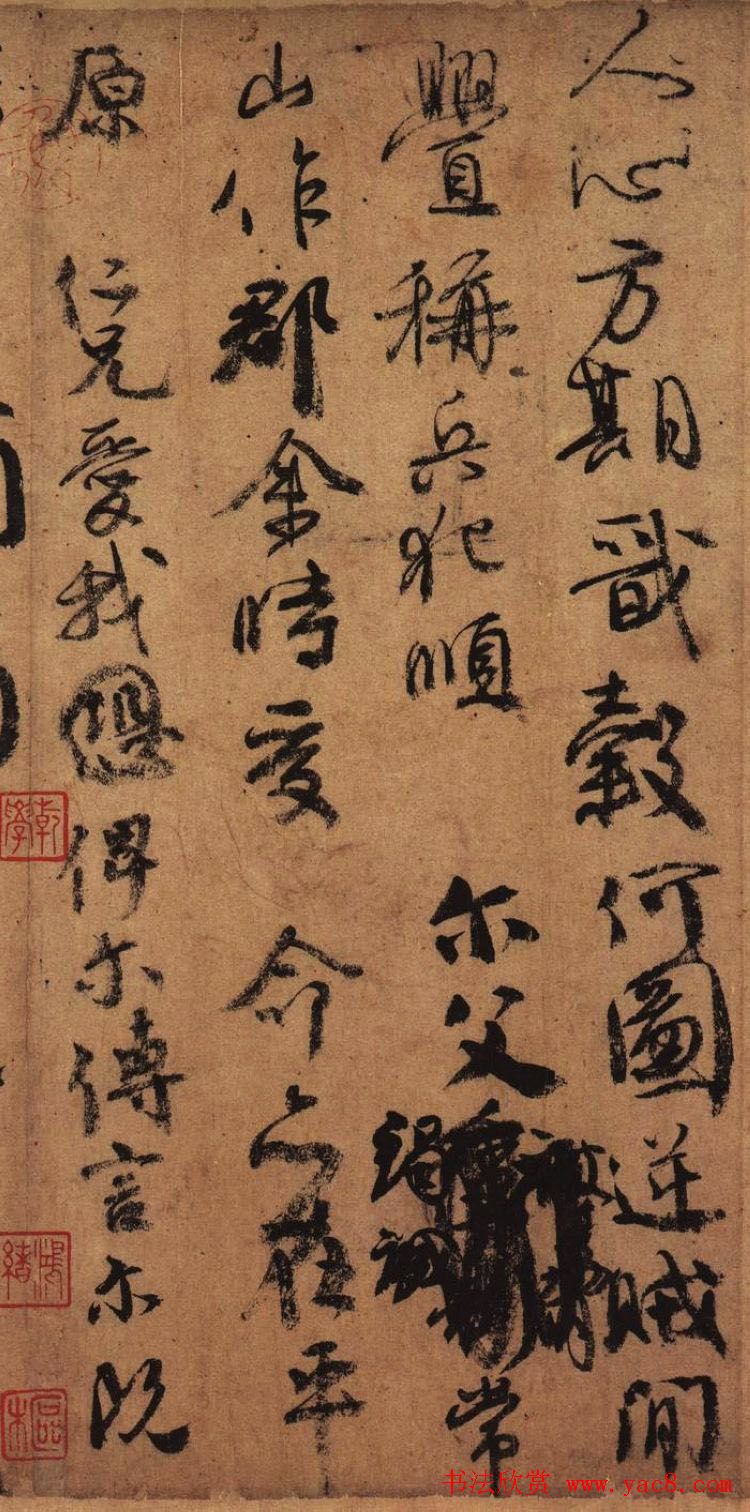 人心方期戩穀何圖逆賊閒
舋稱兵犯順 尔父竭誠常
山作郡余時受 命亦在平
原 仁兄愛我恐俾尔傳言尔既
乾學
鴻緒
书法欣赏 www.yac8.com